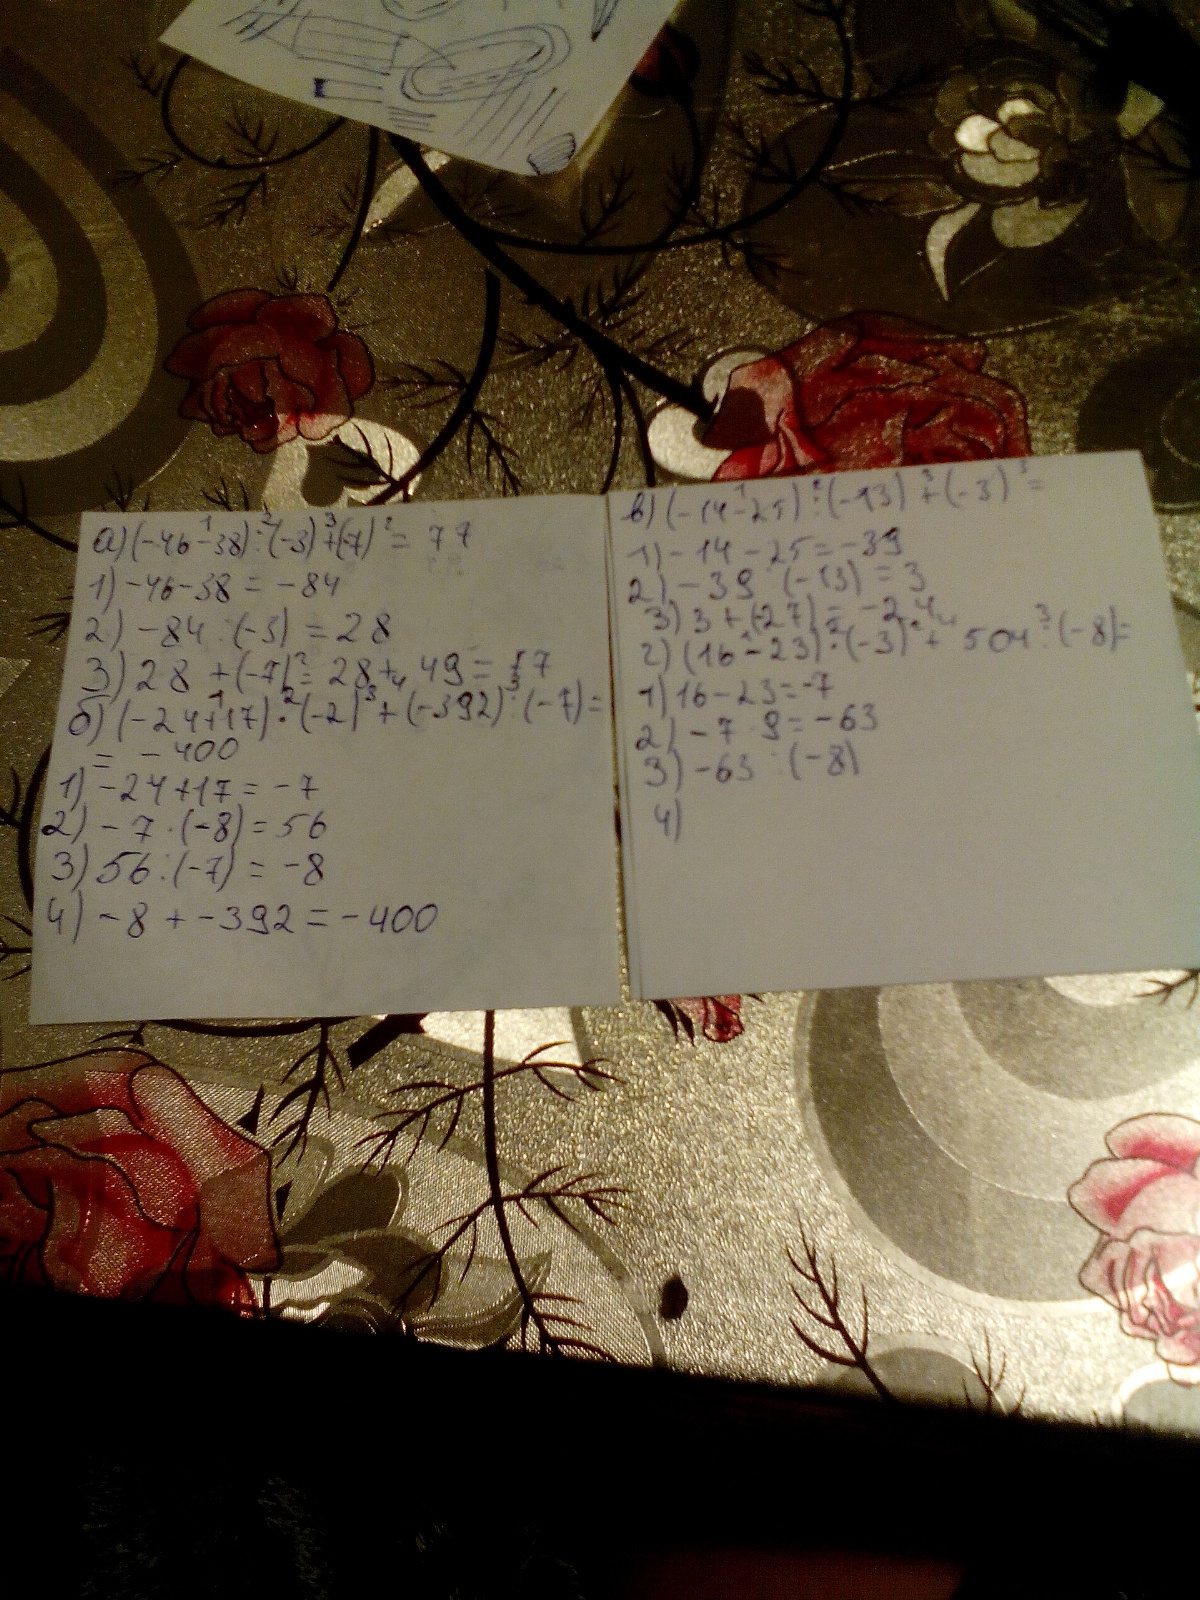 а) (-46-38):(-3)+(-7)²= 77
1) -46-38 = -84
2) -84 : (-3) = 28
3) 28 + (-7)² = 28 + 49 = 77
б) (-24+17)·(-2)³+(-392):(-7)=
= -400
1) -24+17 = -7
2) -7 · (-8) = 56
3) 56 : (-7) = -8
4) -8 + -392 = -400
в) (-14-25):(-13)+(-3)³=
1) -14 - 25 = -39
2) -39 : (-13) = 3
3) 3 + (-27) = -24
г) (16-23)·(-3)²+ 504:(-8)=
1) 16-23 = -7
2) -7 · 9 = -63
3) -63 : (-8)
4)